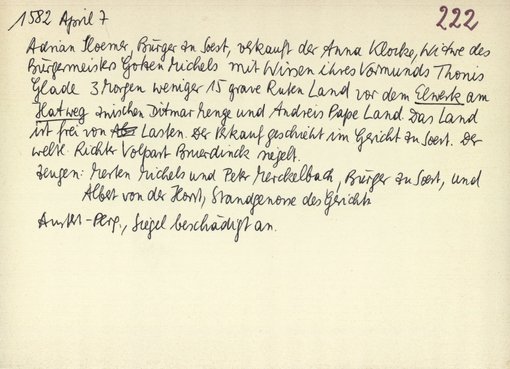 1582 April 7
222
Adrian Noemer, Bürger zu Soest, verkauft der Anna Klocke, Witwe des
Bürgermeisters Gotzen Michels mit Wissen ihres Vormunds Thonis
Glade 3 Morgen weniger 15 grave Ruten Land vor dem Elwerk am
Hatweg zwischen Ditmar Menge und Andreis Pape Land. Das Land
ist frei von Lasten. Der Verkauf geschieht im Gericht zu Soest. Der
welt. Richter Volpart Bruerdinck siegelt.
Zeugen: Merten Michels und Peter Merckelbach, Bürger zu Soest, und
Albet von der Horst, Standgenosse des Gerichts
Ausf.-Perg., Siegel beschädigt an.